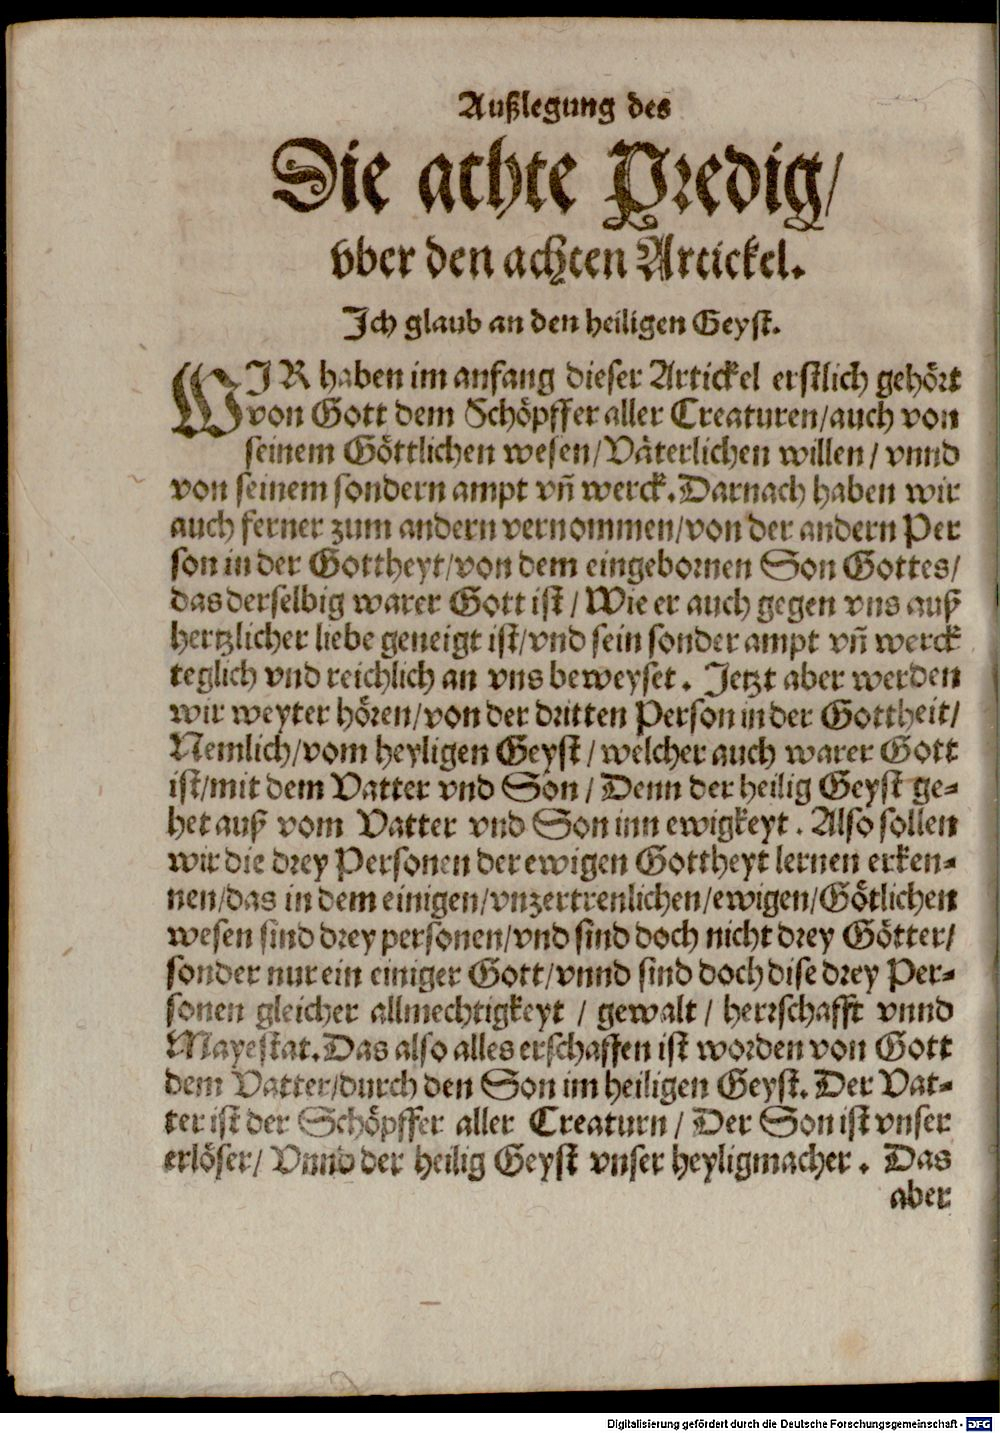 Außlegung des
Die achte Predig/
vber den achten Artickel.
Ich glaub an den heiligen Geyst.
WIR haben im anfang dieser Artickel erstlich gehört
von Gott dem Schöpffer aller Creaturen/auch von
seinem Göttlichen wesen/Väterlichen willen/ vnnd
von seinem sondern ampt vñ werck. Darnach haben wir
auch ferner zum andern vernommen/von der andern Per
son in der Gottheyt/von dem eingebornen Son Gottes/
das derselbig warer Gott ist/ Wie er auch gegen vns auß
hertzlicher liebe geneigt ist/vnd sein sonder ampt vñ werck
teglich vnd reichlich an vns beweyset. Jetzt aber werden
wir weyter hören/von der dritten Person in der Gottheit/
Nemlich/vom heyligen Geyst/ welcher auch warer Gott
ist/mit dem Vatter vnd Son/ Denn der heilig Geyst ge-
het auß vom Vatter vnd Son inn ewigkeyt. Also sollen
wir die drey Personen der ewigen Gottheyt lernen erken-
nen/das in dem einigen/vnzertrenlichen/ewigen/Götlichen
wesen sind drey personen/vnd sind doch nicht drey Götter/
sonder nur ein einiger Gott/vnnd sind doch dise drey Per-
sonen gleicher allmechtigkeyt / gewalt / herrschafft vnnd
Mayestat. Das also alles erschaffen ist worden von Gott
dem Vatter/durch den Son im heiligen Geyst. Der Vat-
ter ist der Schöpffer aller Creaturn/ Der Son ist vnser
erlöser/ Vnnd der heilig Geyst vnser heyligmacher. Das
aber
Digitalisierung gefördert durch die Deutsche Forschungsgemeinschaft - DFG